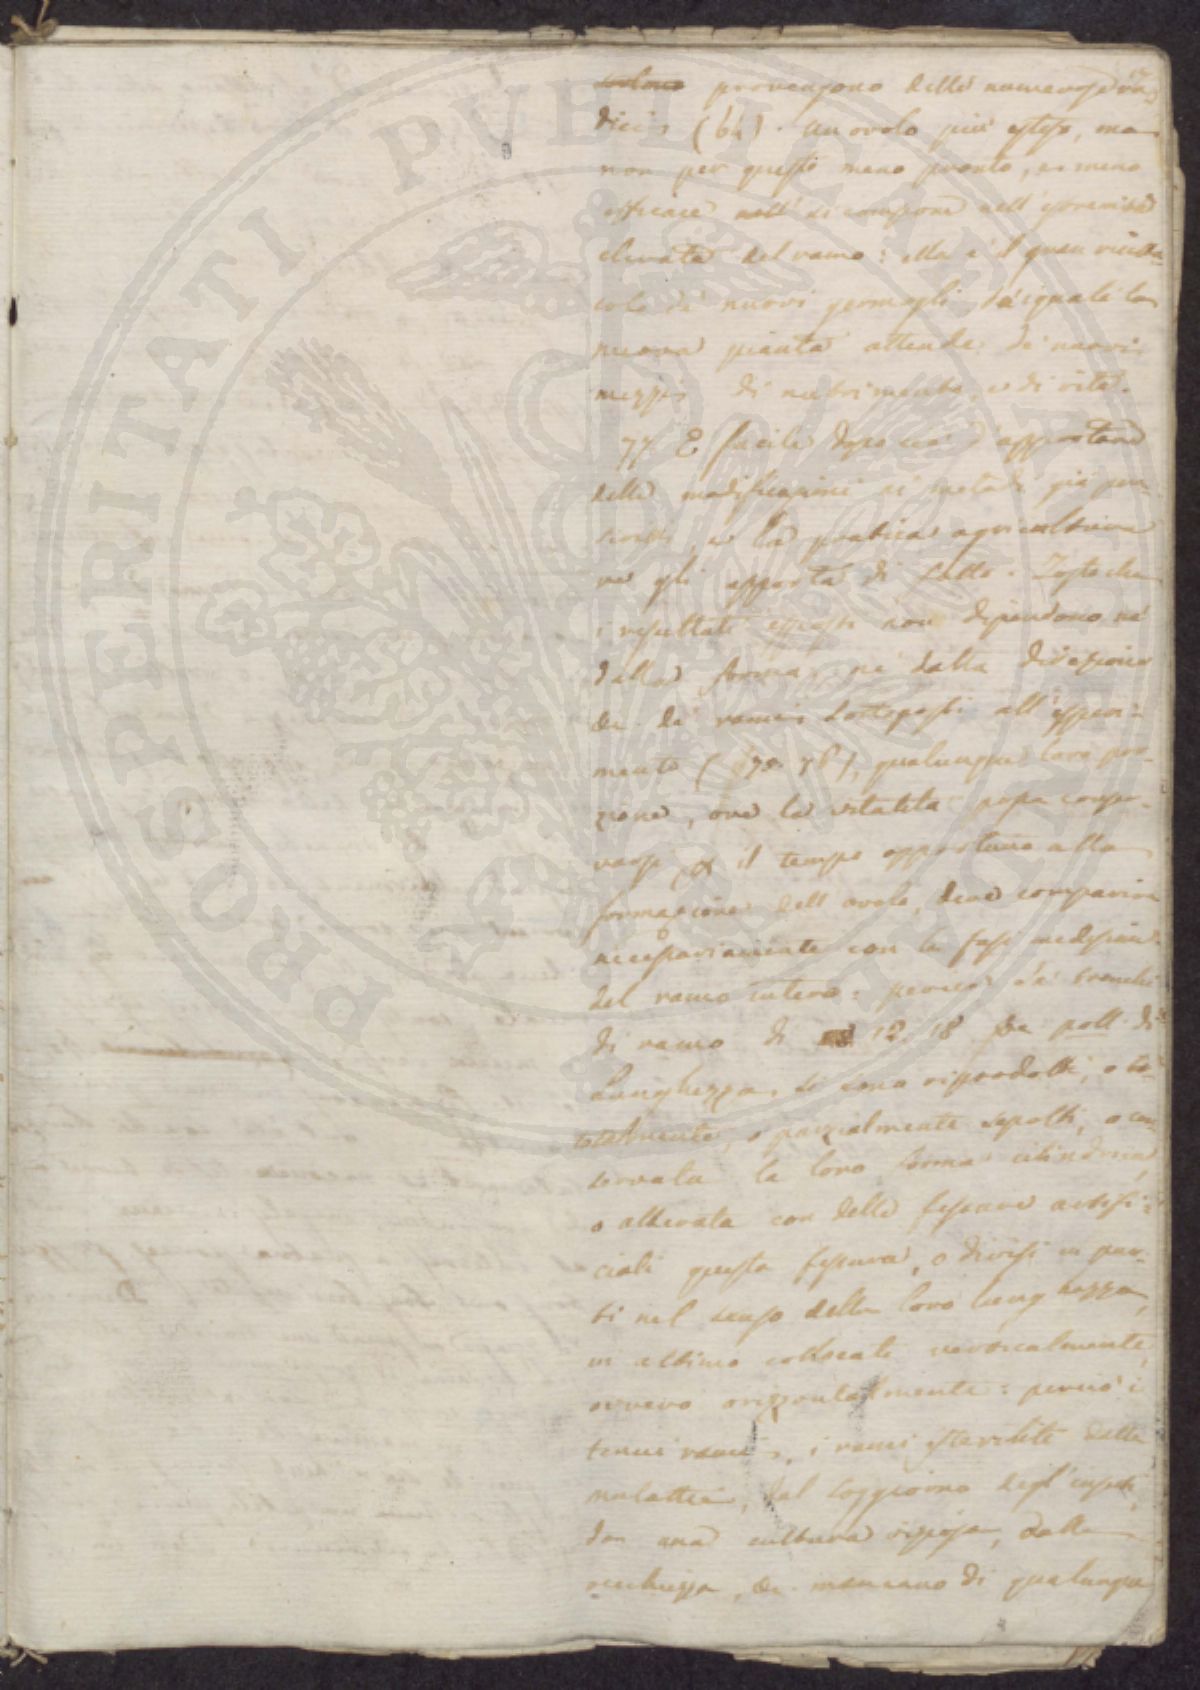 provengono delle numerose ra
dici (64). Un ovolo più esteso, ma
non per questo meno pronto, e meno
efficace nell' si compone nell' estremità
elevata del ramo: ella è il gran ricetta-
colo de' nuovi germogli da' quali la
nuova pianta attende de' nuovi
mezzi di nutrimento, e di vita.
77. E facile dopo ciò d'apportare
delle modificazioni ai metodi già
e la pratica agricoltura
ve gli apporta di fatto. Tosto che
i resultati esposti non dipendono nè
dalla forma, nè dalla direzione
de' rami sottoposti all' esperi-
mento (§75. 76), qualunque loro por-
zione, ove la vitalità possa conser-
varsi il tempo opportuno alla
formazione dell' ovolo, deve comparire
necessariamente con le fasi medesime
del ramo intero: perciò da' tronchi
di ramo di 12. 18. poll. di
lunghezza, si sono riprodotti, o to-
talmente, o parzialmente sepolti, o con
servata la loro forma cilindrica,
o alterata con delle fessure artifi-
ciali questa fessura, o divisi in par-
ti nel senso della loro lunghezza,
in ultimo collocati verticalmente,
ovvero orizzontalmente: perciò i
tenui rami, i rami steriliti dalle
malattie, dal soggiorno degl' insetti,
da una cultura viziosa, dalla
vecchiezza, mancano di qualunque
PROSPERITATI PVBLICAE